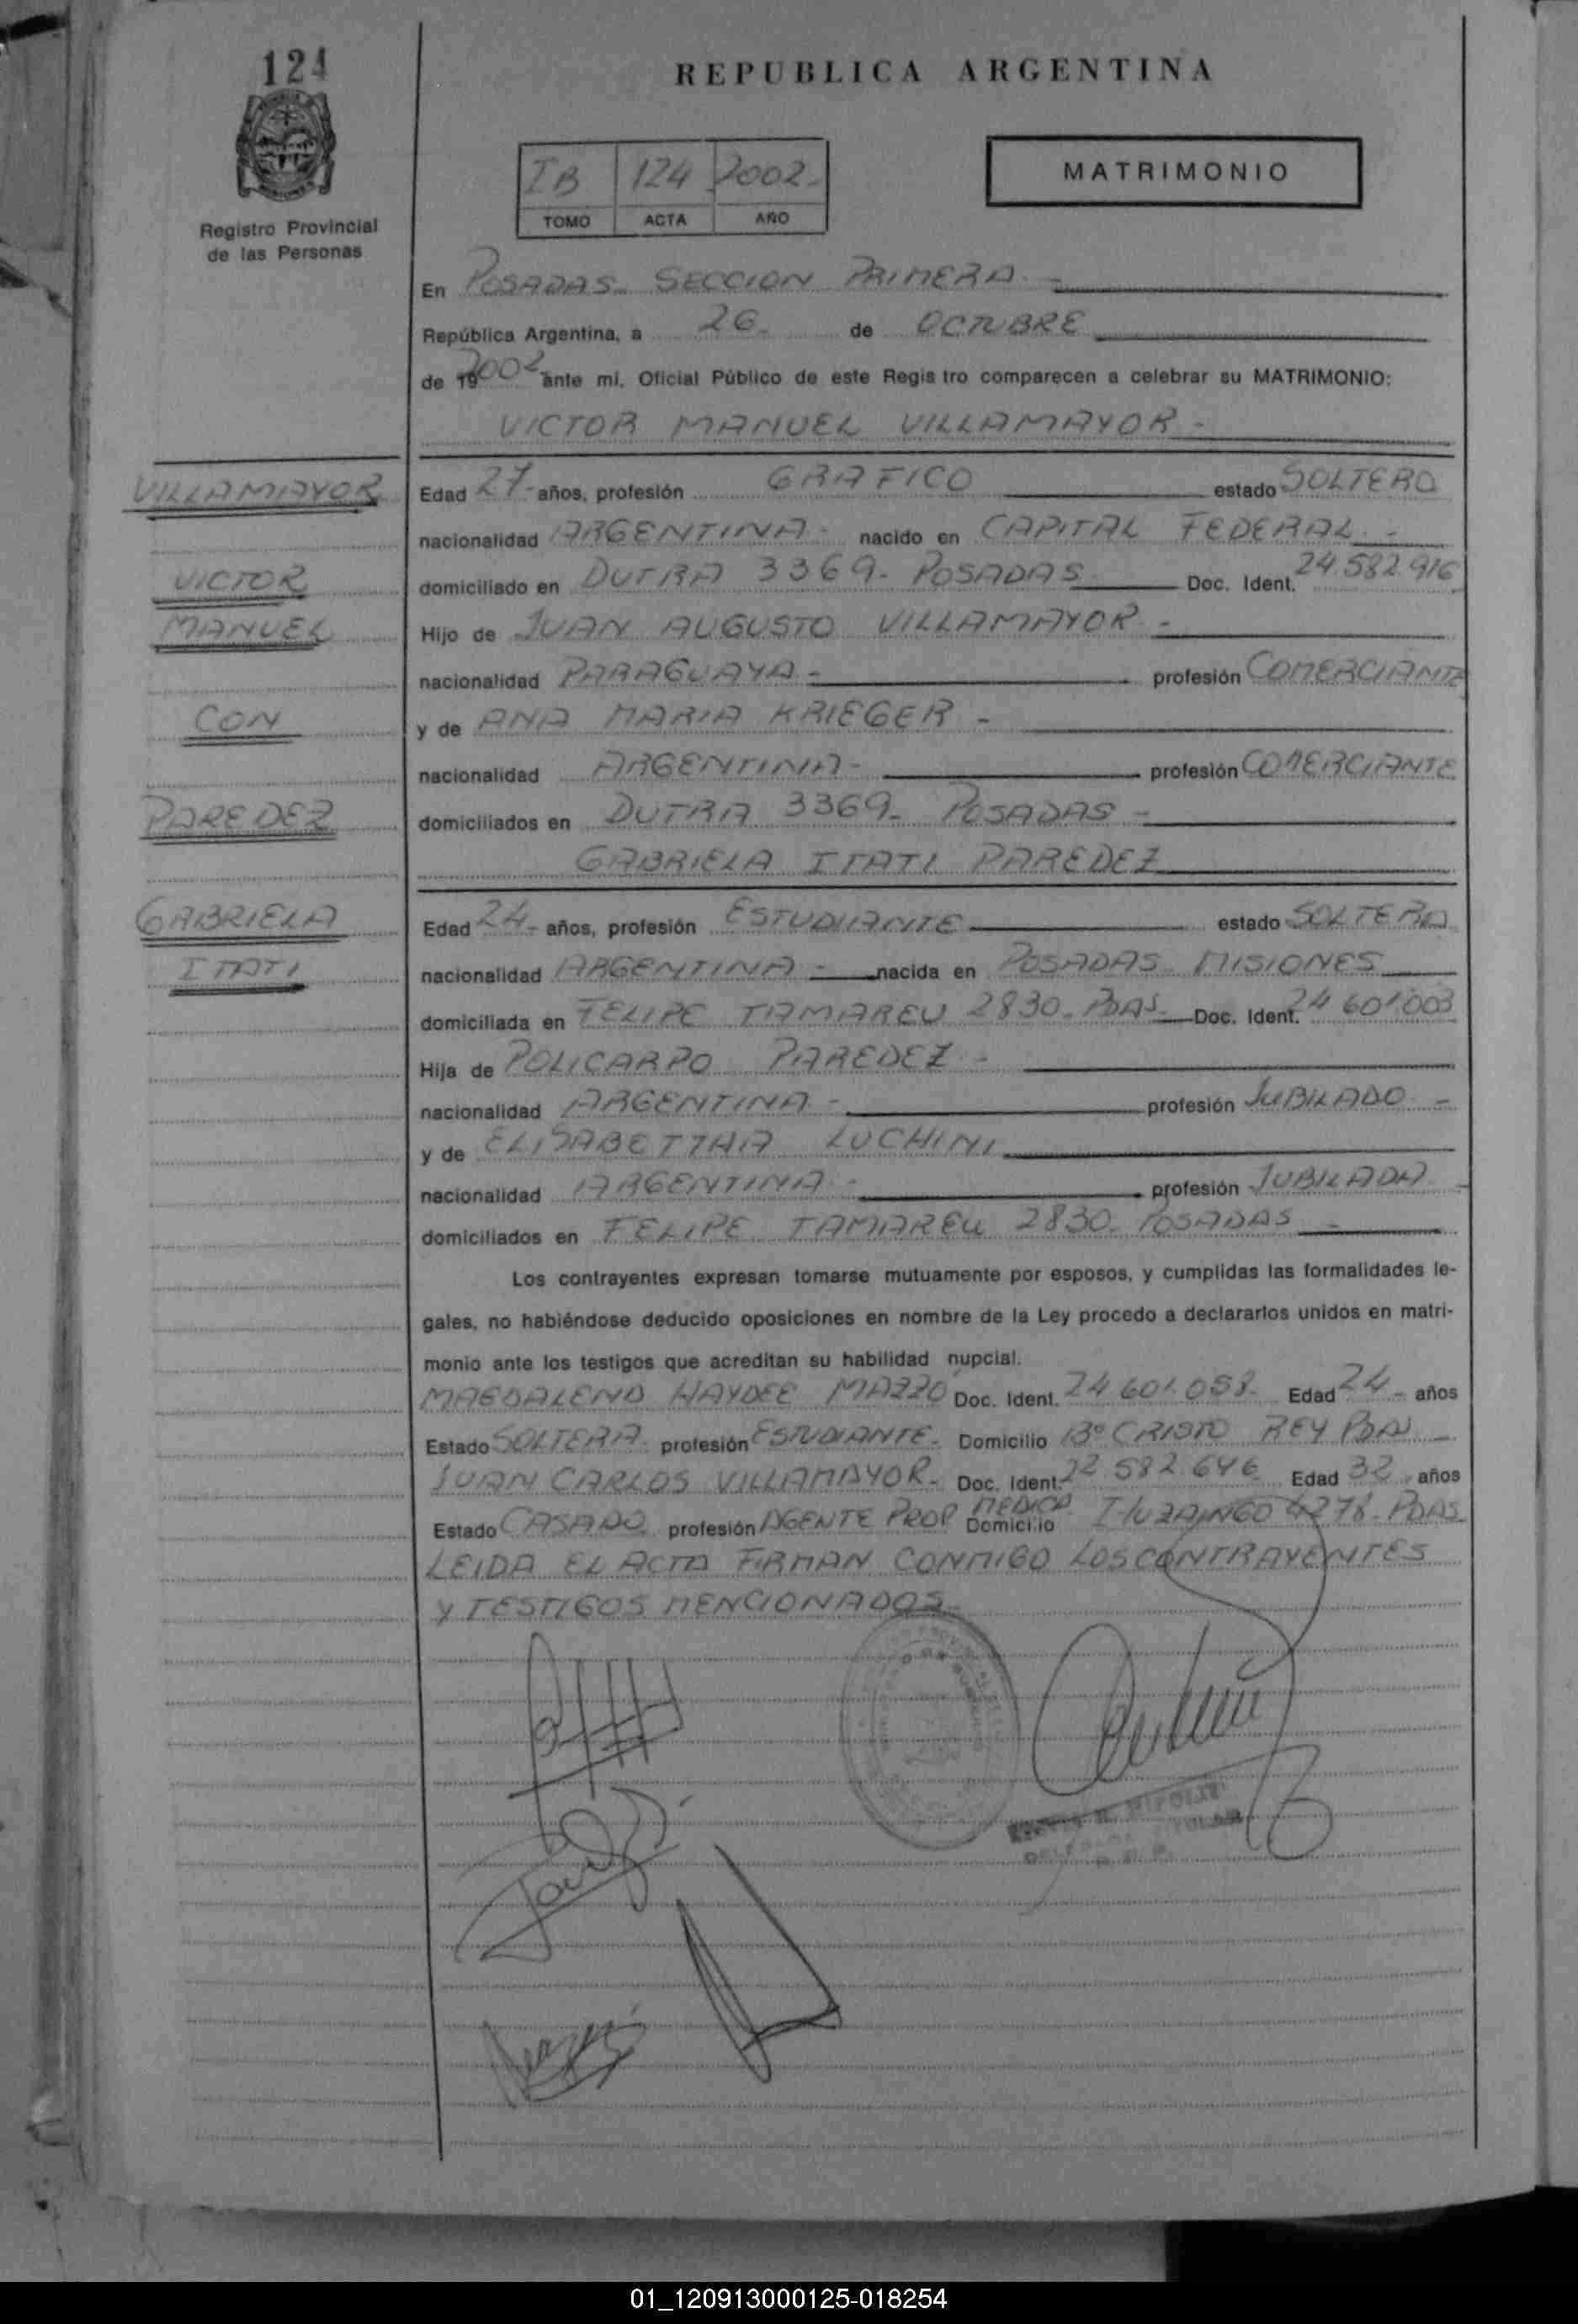 124
REPUBLICA ARGENTINA
IB 124 2002-
TOMO ACTA AÑO
MATRIMONIO
Registro Provincial
de las Personas
En POSADAS- SECCION PRIMERA-
República Argentina, a 26- de OCTUBRE
de 19 2002 ante mi, Oficial Público de este Regis tro comparecen a celebrar su MATRIMONIO:
VICTOR MANUEL VILLAMAYOR-
VILLAMAYOR
VICTOR
MANUEL
CON
PAREDEZ
GABRIELA
ITATI
Edad 27- años, profesión GRAFICO estado SOLTERO
nacionalidad ARGENTINA- nacido en CAPITAL FEDERAL-
domiciliado en DUTRA 3369- POSADAS Doc. Ident. 24.582.916
Hijo de JUAN AUGUSTO VILLAMAYOR-
nacionalidad PARAGUAYA- profesión COMERCIANTE
y de ANA MARIA KRIEGER-
nacionalidad ARGENTINA- profesión COMERCIANTE
domiciliados en DUTRA 3369- POSADAS-
GABRIELA ITATI PAREDEZ
Edad 24- años, profesión ESTUDIANTE estado SOLTERA
nacionalidad ARGENTINA- nacida en POSADAS- MISIONES
domiciliada en FELIPE TAMAREU 2830- PDAS- Doc. Ident. 24 601.003
Hija de POLICARPO PAREDEZ-
nacionalidad ARGENTINA- profesión JUBILADO-
y de ELISABETTHA LUCHINI
nacionalidad ARGENTINA- profesión JUBILADA-
domiciliados en FELIPE TAMAREU 2830- POSADAS-
Los contrayentes expresan tomarse mutuamente por esposos, y cumplidas las formalidades le-
gales, no habiéndose deducido oposiciones en nombre de la Ley procedo a declararlos unidos en matri-
monio ante los testigos que acreditan su habilidad nupcial.
MAGDALENA HAYDEE MAZZÓ Doc. Ident. 24 601.058- Edad 24- años
Estado SOLTERA- profesión ESTUDIANTE- Domicilio Bº CRISTO REY PDAS-
JUAN CARLOS VILLAMAYOR- Doc. Ident. 22 582.646 Edad 32 años
Estado CASADO profesión AGENTE PROP MEDICA Domicilio ITUZAINGO 4278- PDAS
LEIDA EL ACTA FIRMAN CONMIGO LOS CONTRAYENTES
Y TESTIGOS MENCIONADOS-
01_120913000125-018254